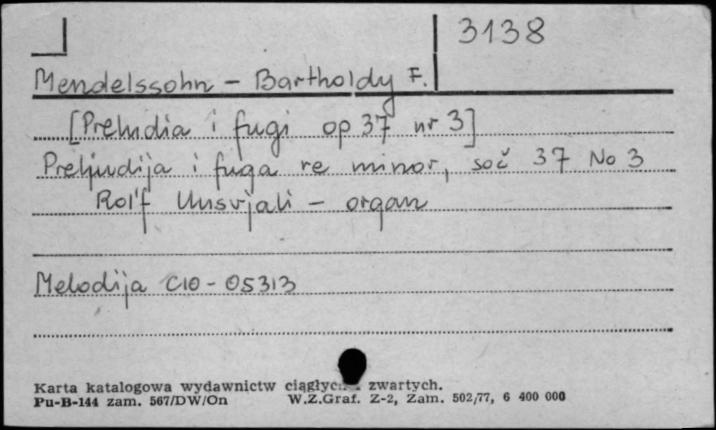 3138
Mendelssohn - Bartholdy F.
[Preludia i fugi op 37 nr 3]
Preljudija i fuga re minor, soč 37 No 3
Rol'f Uusvjali - organ
Melodija C10 - 05313
Karta katalogowa wydawnictw zwartych.
Pu-B-144 zam. 567/DW/On W.Z.Graf. Z-2, Zam. 502/77, 6 400 000